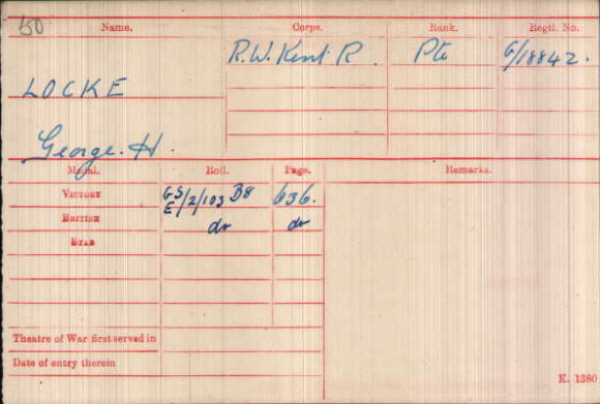 150
Name. Corps. Rank. Regtl. No.
R.W. Kent R. Pte G/18842.
LOCKE
George. H.
Medal. Roll. Page. Remarks.
VICTORY GS/E/2/103 B8 636.
BRITISH do do
STAR
Theatre of War first served in
Date of entry therein
K. 1380